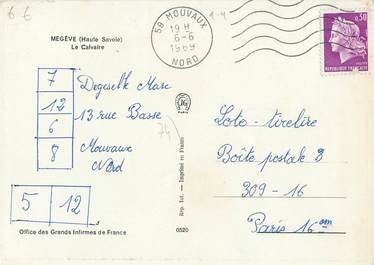 6-6
9-4
MEGÈVE (Haute Savoie)
Le Calvaire
59 MOUVAUX
19 H
6-6
1969
NORD
0,50
REPUBLIQUE FRANÇAISE
7
12
6
8
Marc
13 rue Basse
74
Mouvaux
Nord
5 12
Loto-tirelire
Boîte postale 3
309-16
Paris 16em
Imprimé en France
Office des Grands Infirmes de France
0520